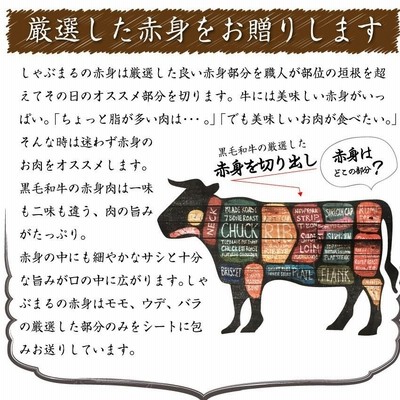 厳選した赤身をお贈りします
しゃぶまるの赤身は厳選した良い赤身部分を職人が部位の垣根を超
えてその日のオススメ部分を切ります。牛には美味しい赤身がいっ
ぱい。「ちょっと脂が多い肉は・・・。」「でも美味しいお肉が食べたい。」
そんな時は迷わず赤身の
お肉をオススメします。
黒毛和牛の赤身肉は一味
も二味も違う、肉の旨み
がたっぷり。
赤身の中にも細やかなサシと十分
な旨みが口の中に広がります。しゃ
ぶまるの赤身はモモ、ウデ、バラ
の厳選した部分のみをシートに包
みお送りしています。
黒毛和牛の厳選した
赤身を切り出し
赤身は
どこの部分?
NECK
BLADE ROAST
7 BONE ROAST
CHUCK
RIB
STRIP
SIRLOIN CAP
RUMP
BRISKET
PLATE
FLANK